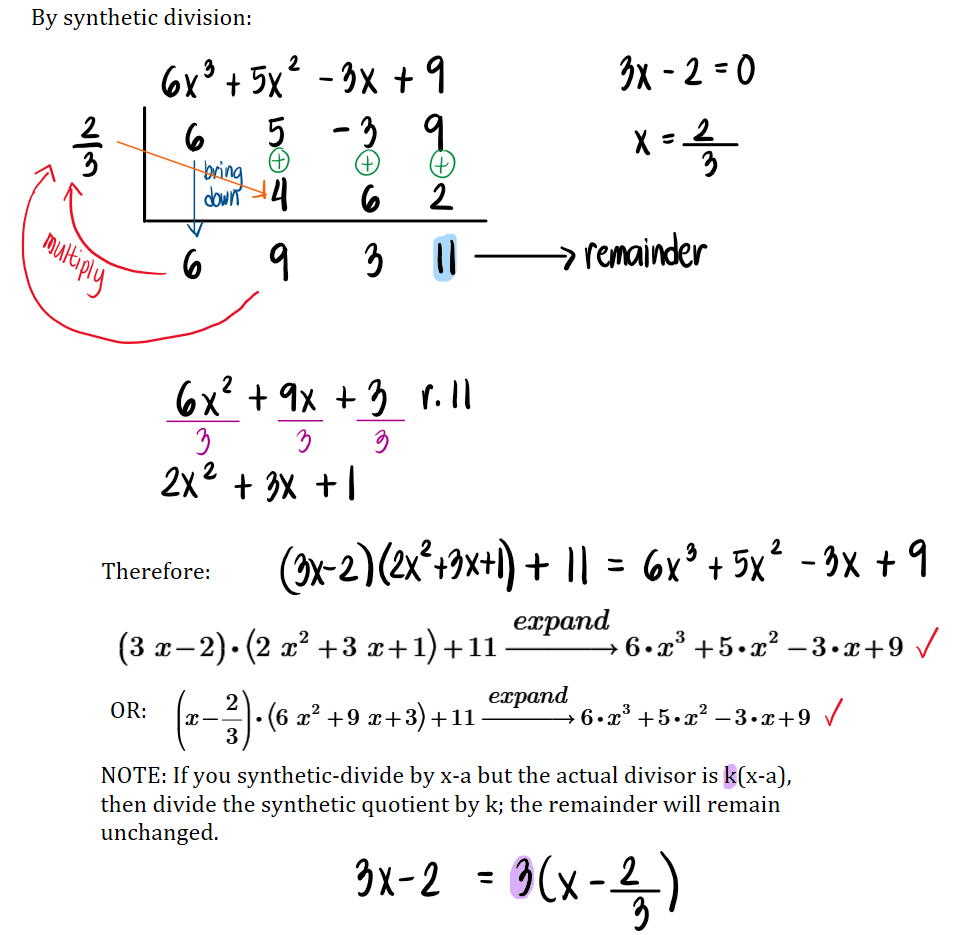 By synthetic division:
6x³ + 5x² - 3x + 9
3x - 2 = 0
x = 2/3
2/3 | 6 5 -3 9
⊕ ⊕ ⊕
bring down
4 6 2
multiply
6 9 3 11 → remainder
6x²/3 + 9x/3 + 3/3 r. 11
2x² + 3x + 1
Therefore: (3x-2)(2x²+3x+1) + 11 = 6x³ + 5x² - 3x + 9
(3 x−2)·(2 x² +3 x+1)+11 expand → 6·x³ +5·x² −3·x+9 ✓
OR: (x−2/3)·(6 x² +9 x+3)+11 expand → 6·x³ +5·x² −3·x+9 ✓
NOTE: If you synthetic-divide by x-a but the actual divisor is k(x-a),
then divide the synthetic quotient by k; the remainder will remain
unchanged.
3x-2 = 3(x - 2/3)